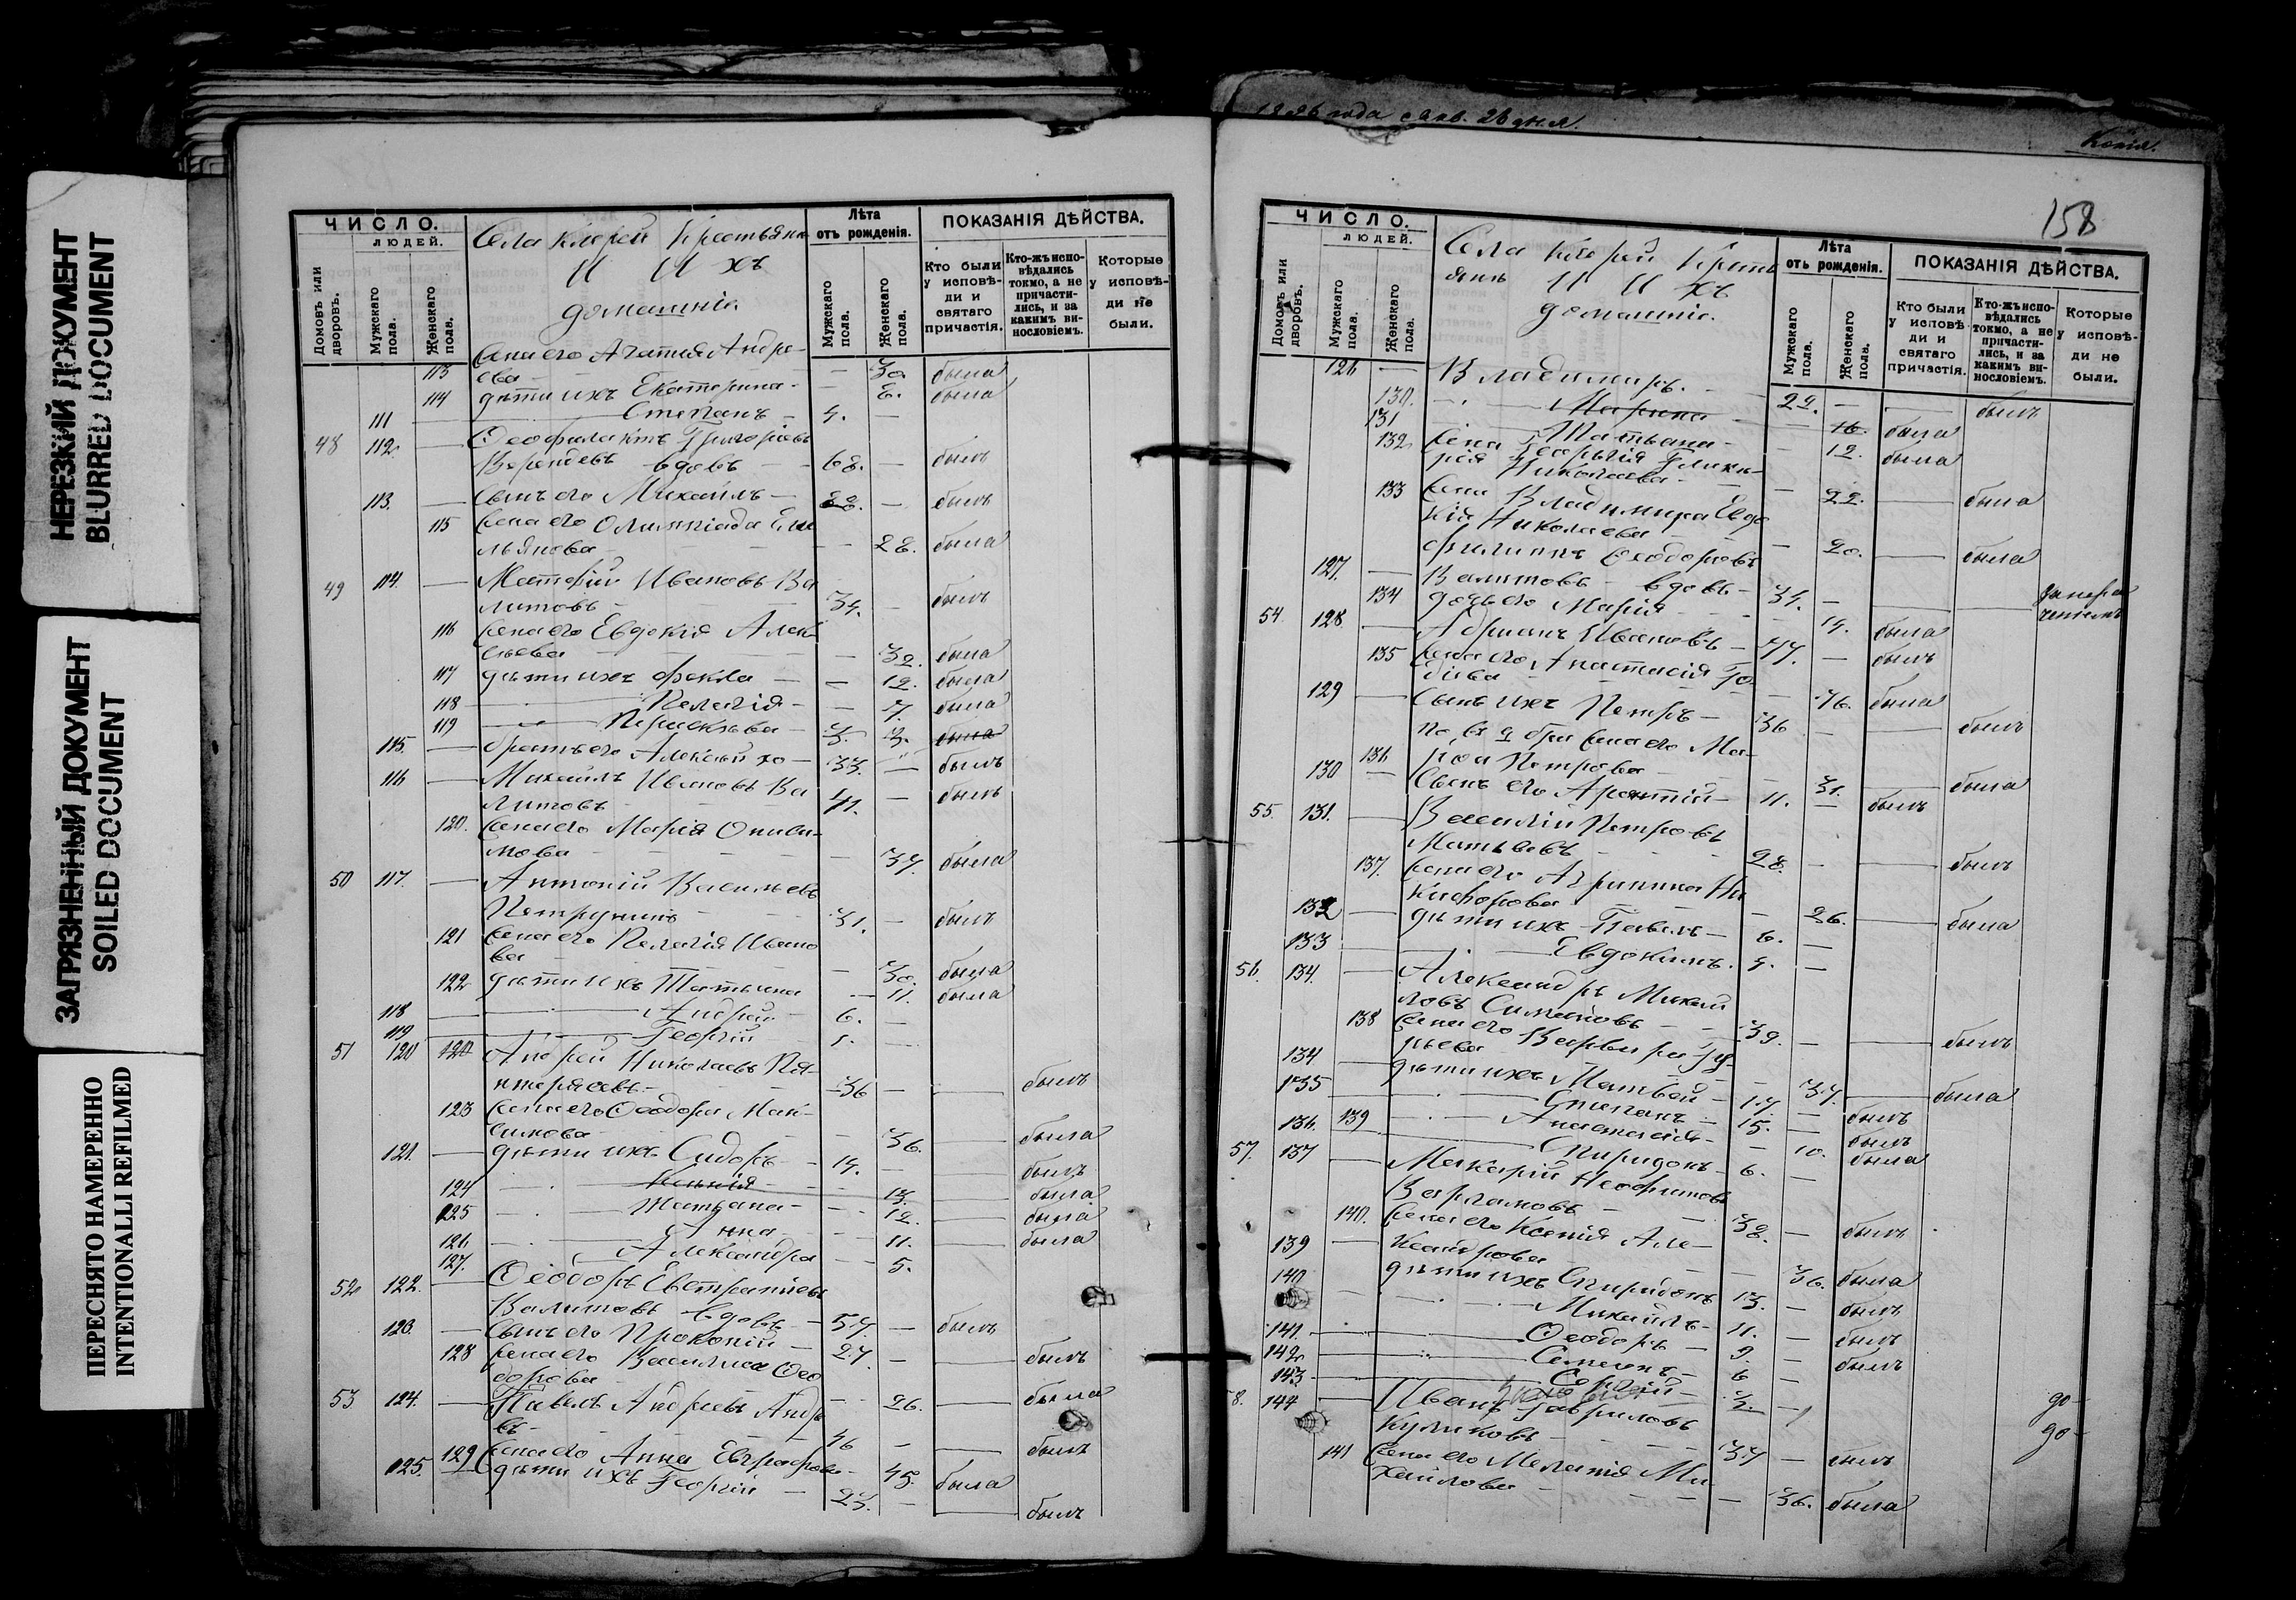 НЕРЕЗКИЙ ДОКУМЕНТ
BLURRED DOCUMENT
ЗАГРЯЗНЕННЫЙ ДОКУМЕНТ
SOILED DOCUMENT
ПЕРЕСНЯТО НАМЕРЕННО
INTENTIONALLI REFILMED
ЧИСЛО.
ЛЮДЕЙ.
Домовъ или дворовъ.
Мужскаго пола.
Женскаго пола.
Села Крестьяне
И ИХЪ
домашніе.
Лѣта
отъ рожденія.
Мужскаго пола.
Женскаго пола.
ПОКАЗАНІЯ ДѢЙСТВА.
Кто были у исповѣди и святаго причастія.
Кто-жъ исповѣдались токмо, а не причастились, и за какимъ винословіемъ.
Которые у исповѣди не были.
113 Жена его Агапія Андре-
ева — 30. была
114 дѣти ихъ Екатерина — 8. была
111 Степанъ 4. —
48 112 Ѳеофилактъ Григорьевъ
вдовъ 68. — былъ
113. Сынъ его Михаилъ 28. — былъ
115 Жена его Олимпіада Еме
льянова — 28. была
49 114. Матфей Ивановъ Ва
литовъ 34. — былъ
116 Жена его Евдокія Алек
сѣева — 32. была
117 дѣти ихъ Фекла — 12. была
118 Пелагія — 7. была
119 Параскева 3. 3. была
115. братъ его Алексѣй хо 33. — былъ
116 Михаилъ Ивановъ Ва
литовъ 41. — былъ
120. Жена его Марія Аниси-
мова — 37. была
50 117. Антоній Васильевъ
Петрунинъ 31. — былъ
121 Жена его Пелагія Ивано
ва — 30. была
122 дѣти ихъ Татьяна — 11. была
118 Андрей 6. —
119 Георгій 1. —
51 120 120 Андрей Николаевъ Пан-
телѣевъ 36 — былъ
123 Жена его Ѳеодора Мак-
симова — 36. была
121. дѣти ихъ Сидоръ 14. — былъ
124 Ксенія 13. была
125 Татьяна 12. была
126 Анна 11. была
127. Александра 5.
52 122. Ѳеодоръ Евстратіевъ
Валитовъ вдовъ 57. — былъ
123. Сынъ его Прокопій 27. — былъ
128 Жена его Василиса Ѳео
дорова — 26. была
53 124. Павелъ Андреевъ Андре
въ 46 — былъ
129 Жена его Анна Евграфова 45. была
125. дѣти ихъ Георгій 23. — былъ
1896 года янв. 26 дня.
Копія.
158
ЧИСЛО.
ЛЮДЕЙ.
Домовъ или дворовъ.
Мужскаго пола.
Женскаго пола.
Села Кресть
яне И ИХЪ
домашніе.
Лѣта
отъ рожденія.
Мужскаго пола.
Женскаго пола.
ПОКАЗАНІЯ ДѢЙСТВА.
Кто были у исповѣди и святаго причастія.
Кто-жъ исповѣдались токмо, а не причастились, и за какимъ винословіемъ.
Которые у исповѣди не были.
126 — Владиміръ. 22. — былъ
130. Марина — 16. была
131 Татьяна — 12. была
132 Жена Георгія Глике-
рія Николаева — 22. была
133 Жена Владиміра Евдо
кія Николаева — 20. была
127. Филиппъ Ѳеодоровъ
Валитовъ вдовъ 34. —
134 дочь его Марія 14. была
54 128 Адріанъ Ивановъ 77. — былъ
135 Жена его Анастасія Гор
дѣева 76. была
129 Сынъ ихъ Петръ 36 — былъ
136 по 2 бра жена его Ма-
рѳа Петрова — 31. была
130 Сынъ его Арсентій 11. — былъ
55. 131. Василій Петровъ
Матвѣевъ 28. — былъ
137. Жена его Агрипина Ни
кифорова — 26. была
132 дѣти ихъ Павелъ 6. —
133 Евдокимъ. 4. —
56. 134. Александръ Михаи
ловъ Симановъ 39. — былъ
138 Жена его Варвара Гу-
рьева — 37. была
134 дѣти ихъ Матвѣй 17. — былъ
135 Степанъ 15. — былъ
139 Анастасія — 10. была
136. Спиридонъ 6. —
57. 137 Макарій Неофитовъ
Варламовъ 38. — былъ
140. Жена его Ксенія Але-
ксандрова — 36. была
139 дѣти ихъ Спиридонъ 13. — былъ
140 Михаилъ 11. — былъ
141. Ѳеодоръ 9. — былъ
142 Семенъ 6 —
143 Сергій 2. —
58. 144 Иванъ Гавриловъ
Куликовъ 37 — былъ
141 Жена его Меланія Ми
хайлова — 36. была